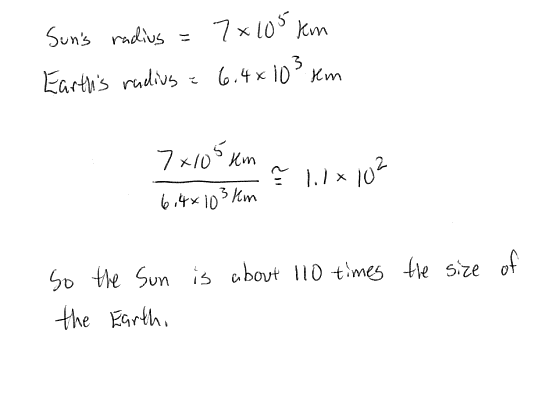 Sun's radius = 7 × 10⁵ km
Earth's radius = 6.4 × 10³ km
7 × 10⁵ km / 6.4 × 10³ km ≅ 1.1 × 10²
So the Sun is about 110 times the size of
the Earth.